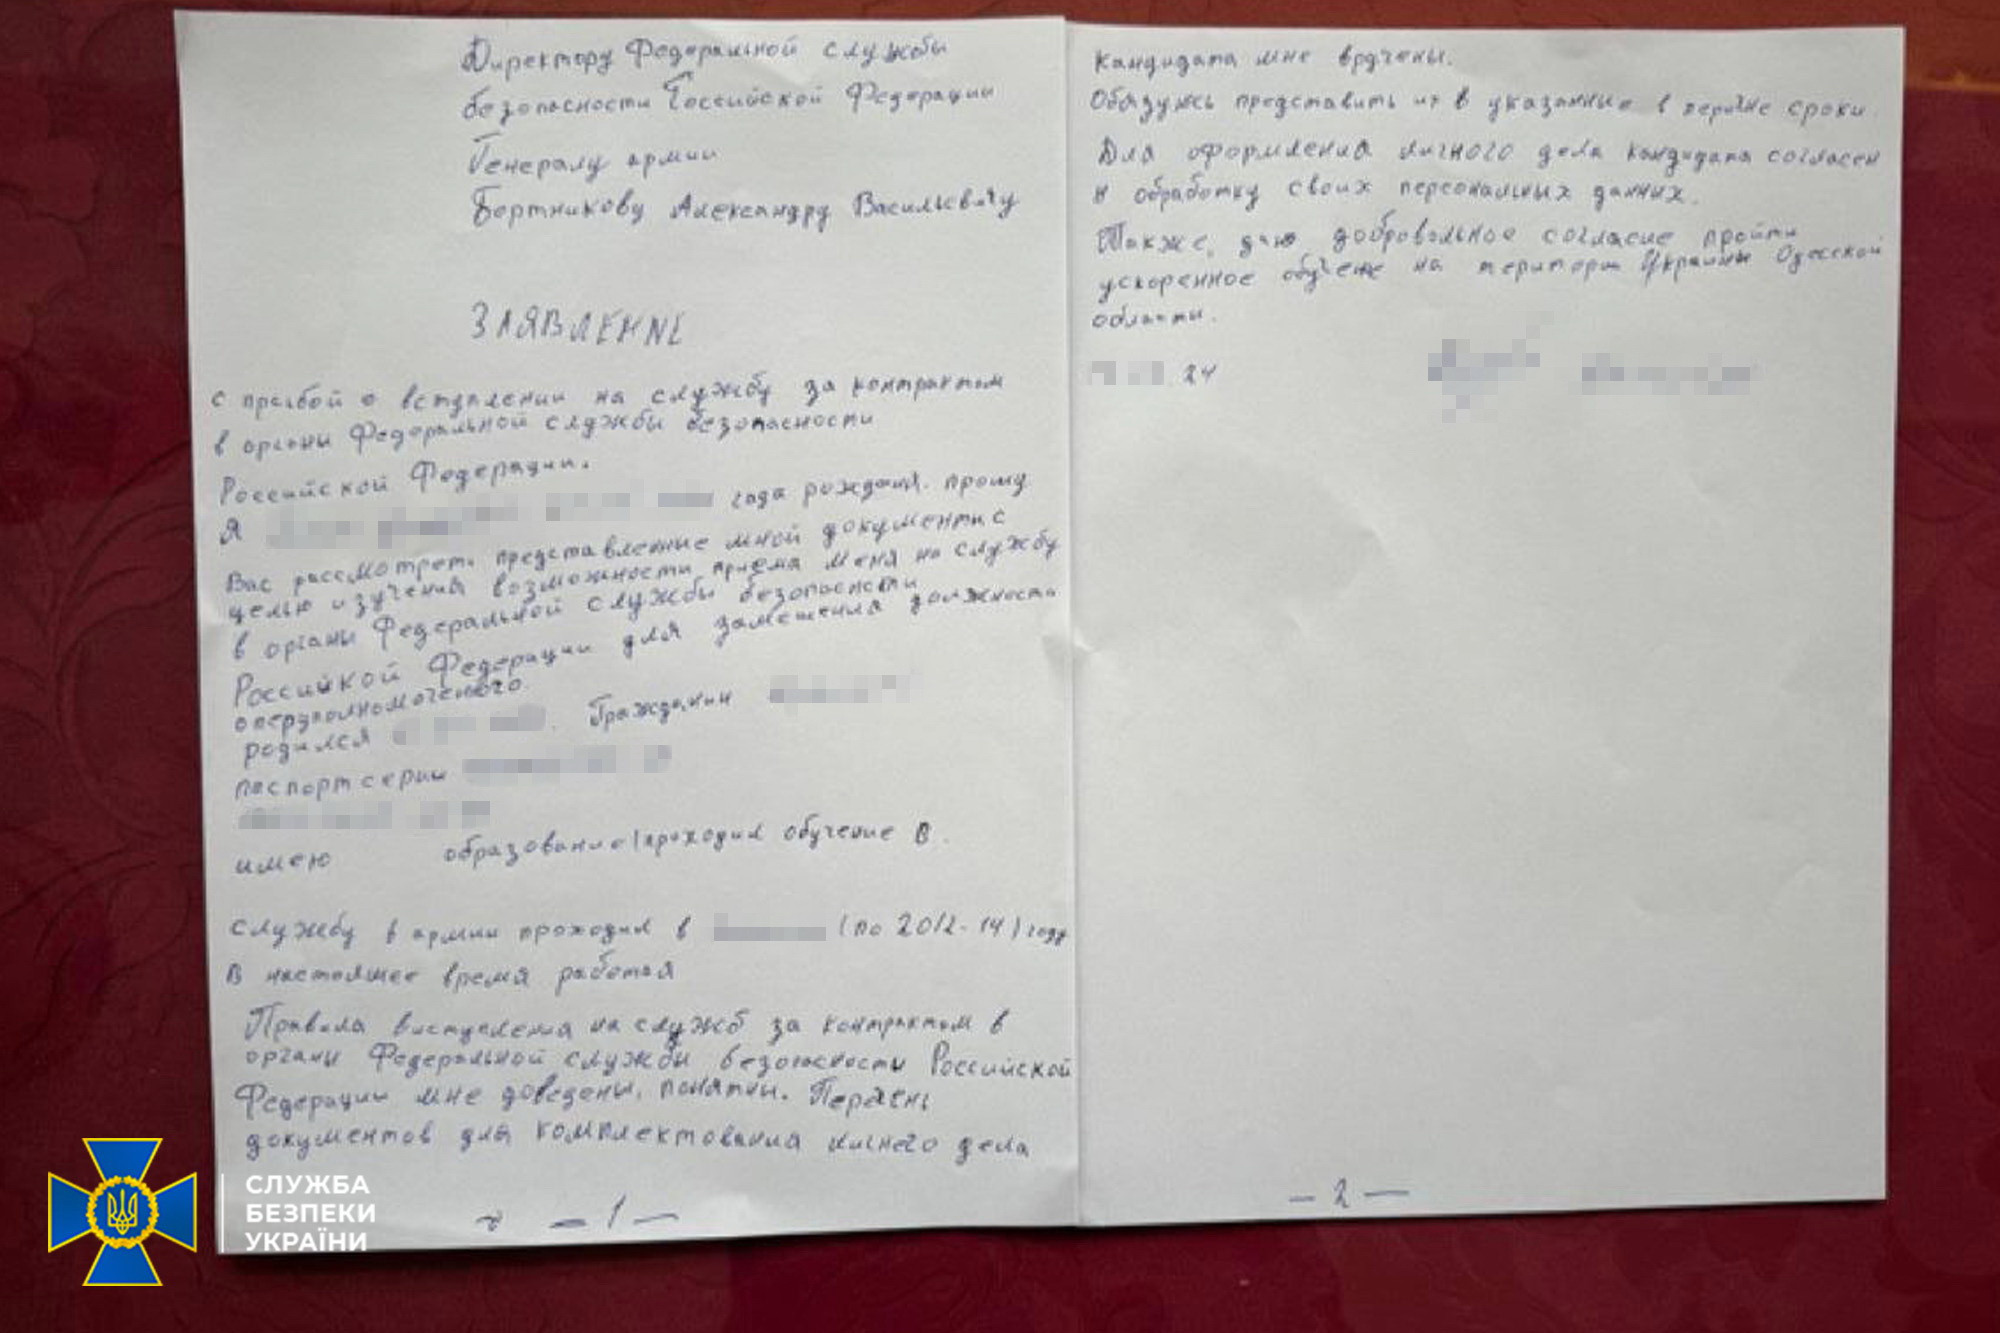 Директору Федеральной службы
безопасности Российской Федерации
Генералу армии
Бортникову Александру Васильевичу
ЗАЯВЛЕНИЕ
с прозбой о вступлении на службу за контрактом
в органы Федеральной службы безопасности
Российской Федерации.
Я года рождания. прошу
Вас рассмотреть представленные мной документы с
целью изучения возможности приема меня на службу
в органы Федеральной службы безопасности
Российкой Федерации для замешения должности
оперуполномоченого.
родился . Гражданин
паспорт серии
имею образование/проходил обучение в.
службу в армии проходил в (по 2012-14) году
В настояшее время работая
Правила виступления на служб за контрактом в
органи Федеральной службы безопасности Российской
Федерации мне доведены, понятны. Перечень
документов для комплектования личнего дела
- 1 -
кандидата мне вручены.
Обязуюсь представить их в указанные в перечне сроки.
Для оформления личного дела кандидата согласен
н обработку своих персональных данных.
Также, даю добровольное согласие пройти
ускоренное обучене на територи Украины Одесской
области.
24
- 2 -
СЛУЖБА
БЕЗПЕКИ
УКРАЇНИ